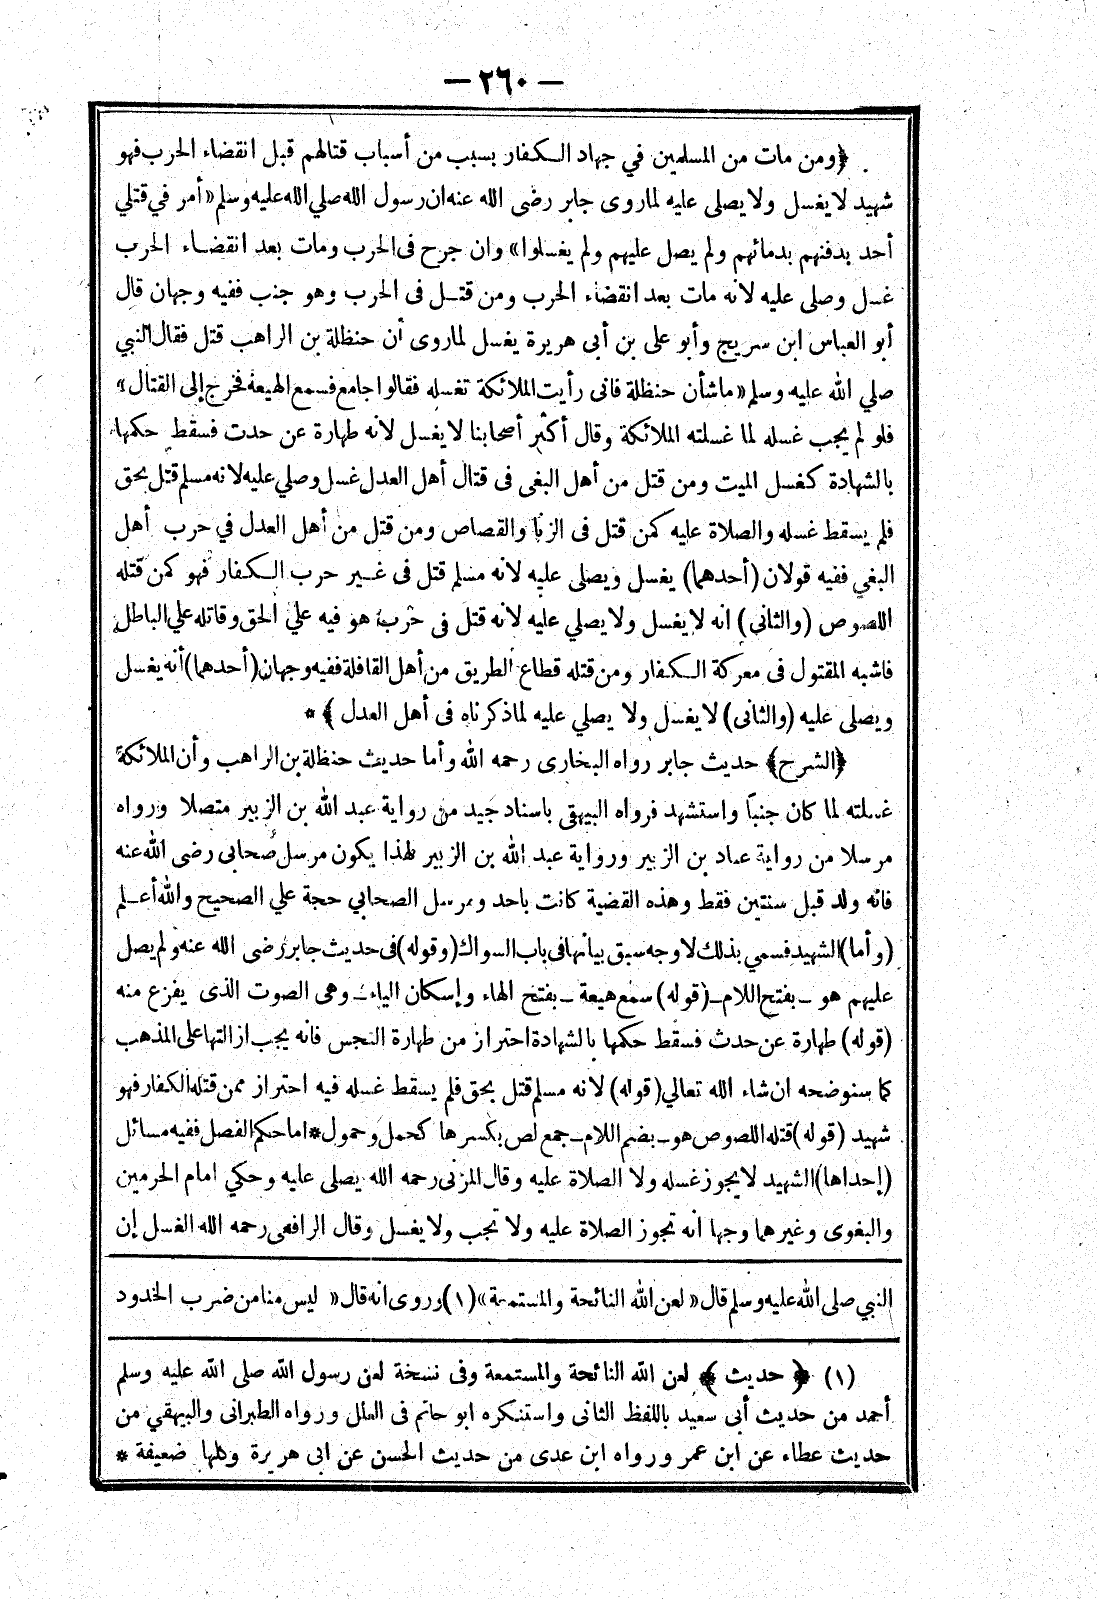 — ٢٦٠ —
﴿ومن مات من المسلمين في جهاد الكفار بسبب من أسباب قتالهم قبل انقضاء الحرب فهو
شهيد لا يغسل ولا يصلى عليه لماروى جابر رضى الله عنه ان رسول الله صلي الله عليه وسلم «أمر في قتلي
أحد بدفنهم بدمائهم ولم يصل عليهم ولم يغسلوا» وان جرح فى الحرب ومات بعد انقضاء الحرب
غسل وصلى عليه لأنه مات بعد انقضاء الحرب ومن قتل فى الحرب وهو جنب ففيه وجهان قال
أبو العباس ابن سريج وأبو على بن أبى هريرة يغسل لماروى أن حنظلة بن الراهب قتل فقال النبي
صلي الله عليه وسلم «ماشأن حنظلة فانى رأيت الملائكة تغسله فقالوا جامع فسمع الهيعة فخرج إلى القتال»
فلو لم يجب غسله لما غسلته الملائكة وقال أكثر أصحابنا لا يغسل لأنه طهارة عن حدث فسقط حكمها
بالشهادة كغسل الميت ومن قتل من أهل البغى فى قتال أهل العدل غسل وصلي عليه لانه مسلم قتل بحق
فلم يسقط غسله والصلاة عليه كمن قتل فى الزنا والقصاص ومن قتل من أهل العدل في حرب أهل
البغي ففيه قولان (أحدهما) يغسل ويصلى عليه لانه مسلم قتل فى غير حرب الكفار فهو كمن قتله
اللصوص (والثانى) انه لا يغسل ولا يصلي عليه لانه قتل فى حرب هو فيه علي الحق وقاتله علي الباطل
فاشبه المقتول فى معركة الكفار ومن قتله قطاع الطريق من أهل القافلة ففيه وجهان (أحدهما) أنه يغسل
ويصلى عليه (والثانى) لا يغسل ولا يصلي عليه لماذكرناه فى أهل العدل﴾ *
﴿الشرح﴾ حديث جابر رواه البخارى رحمه الله وأما حديث حنظلة بن الراهب وأن الملائكة
غسلته لما كان جنبا واستشهد فرواه البيهقى باسناد جيد من رواية عبد الله بن الزبير متصلا ورواه
مرسلا من رواية عباد بن الزبير ورواية عبد الله بن الزبير لهذا يكون مرسل صحابى رضى الله عنه
فانه ولد قبل سنتين فقط وهذه القضية كانت باحد ومرسل الصحابي حجة علي الصحيح والله أعلم
(وأما) الشهيد فسمي بذلك لاوجه سبق بيانها فى باب السواك (وقوله) فى حديث جابر رضى الله عنه ولم يصل
عليهم هو ــ بفتح اللام ــ (قوله) سمع هيعة ــ بفتح الهاء وإسكان الياء ــ وهى الصوت الذى يفزع منه
(قوله) طهارة عن حدث فسقط حكمها بالشهادة احتراز من طهارة النجس فانه يجب ازالتها على المذهب
كما سنوضحه ان شاء الله تعالي (قوله) لانه مسلم قتل بحق فلم يسقط غسله فيه احتراز ممن قتله الكفار فهو
شهيد (قوله) قتله اللصوص هو ــ بضم اللام ــ جمع لص بكسرها كحمل وحمول * اما حكم الفصل ففيه مسائل
(إحداها) الشهيد لا يجوز غسله ولا الصلاة عليه وقال المزنى رحمه الله يصلى عليه وحكي امام الحرمين
والبغوى وغيرهما وجها أنه تجوز الصلاة عليه ولا تجب ولا يغسل وقال الرافعى رحمه الله الغسل إن
النبي صلى الله عليه وسلم قال «لعن الله النائحة والمستمعة» (١) وروى انه قال «ليس منا من ضرب الخدود
(١) ﴿حديث﴾ لعن الله النائحة والمستمعة وفى نسخة لعن رسول الله صلى الله عليه وسلم
أحمد من حديث أبى سعيد باللفظ الثانى واستنكره ابو حاتم فى العلل ورواه الطبرانى والبيهقي من
حديث عطاء عن ابن عمر ورواه ابن عدى من حديث الحسن عن ابى هريرة وكلها ضعيفة *